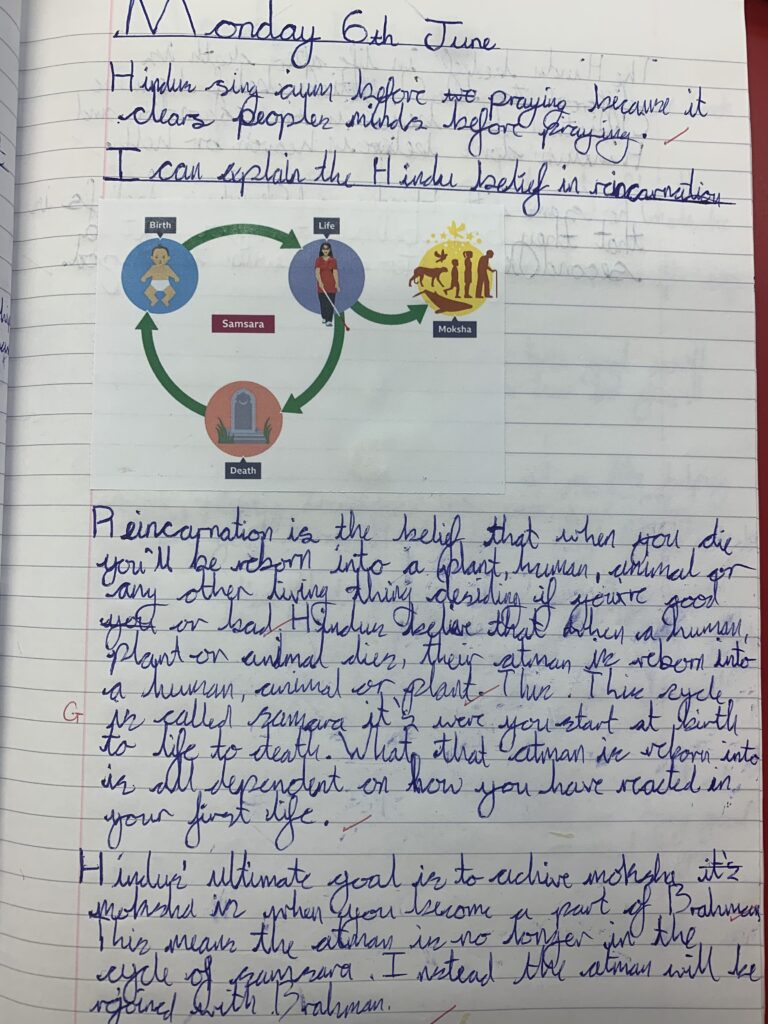 Monday 6th June
Hindus sing aum before praying because it
clears peoples minds before praying.
I can explain the Hindu belief in reincarnation
Birth
Life
Samsara
Moksha
Death
Reincarnation is the belief that when you die
you'll be reborn into a plant, human, animal or
any other living thing desiding if you're good
you or bad. Hindus beleve that when a human,
plant or animal dies, their atman is reborn into
a human, animal or plant. This. This cycle
G is called samsara it's were you start at birth
to life to death. What that atman is reborn into
is all dependent on how you have reacted in
your first life.
Hindus' ultimate goal is to achive moksha it's
moksha is when you become a part of Brahman
This means the atman is no longer in the
cycle of samsara. Instead the atman will be
rejoined with Brahman.